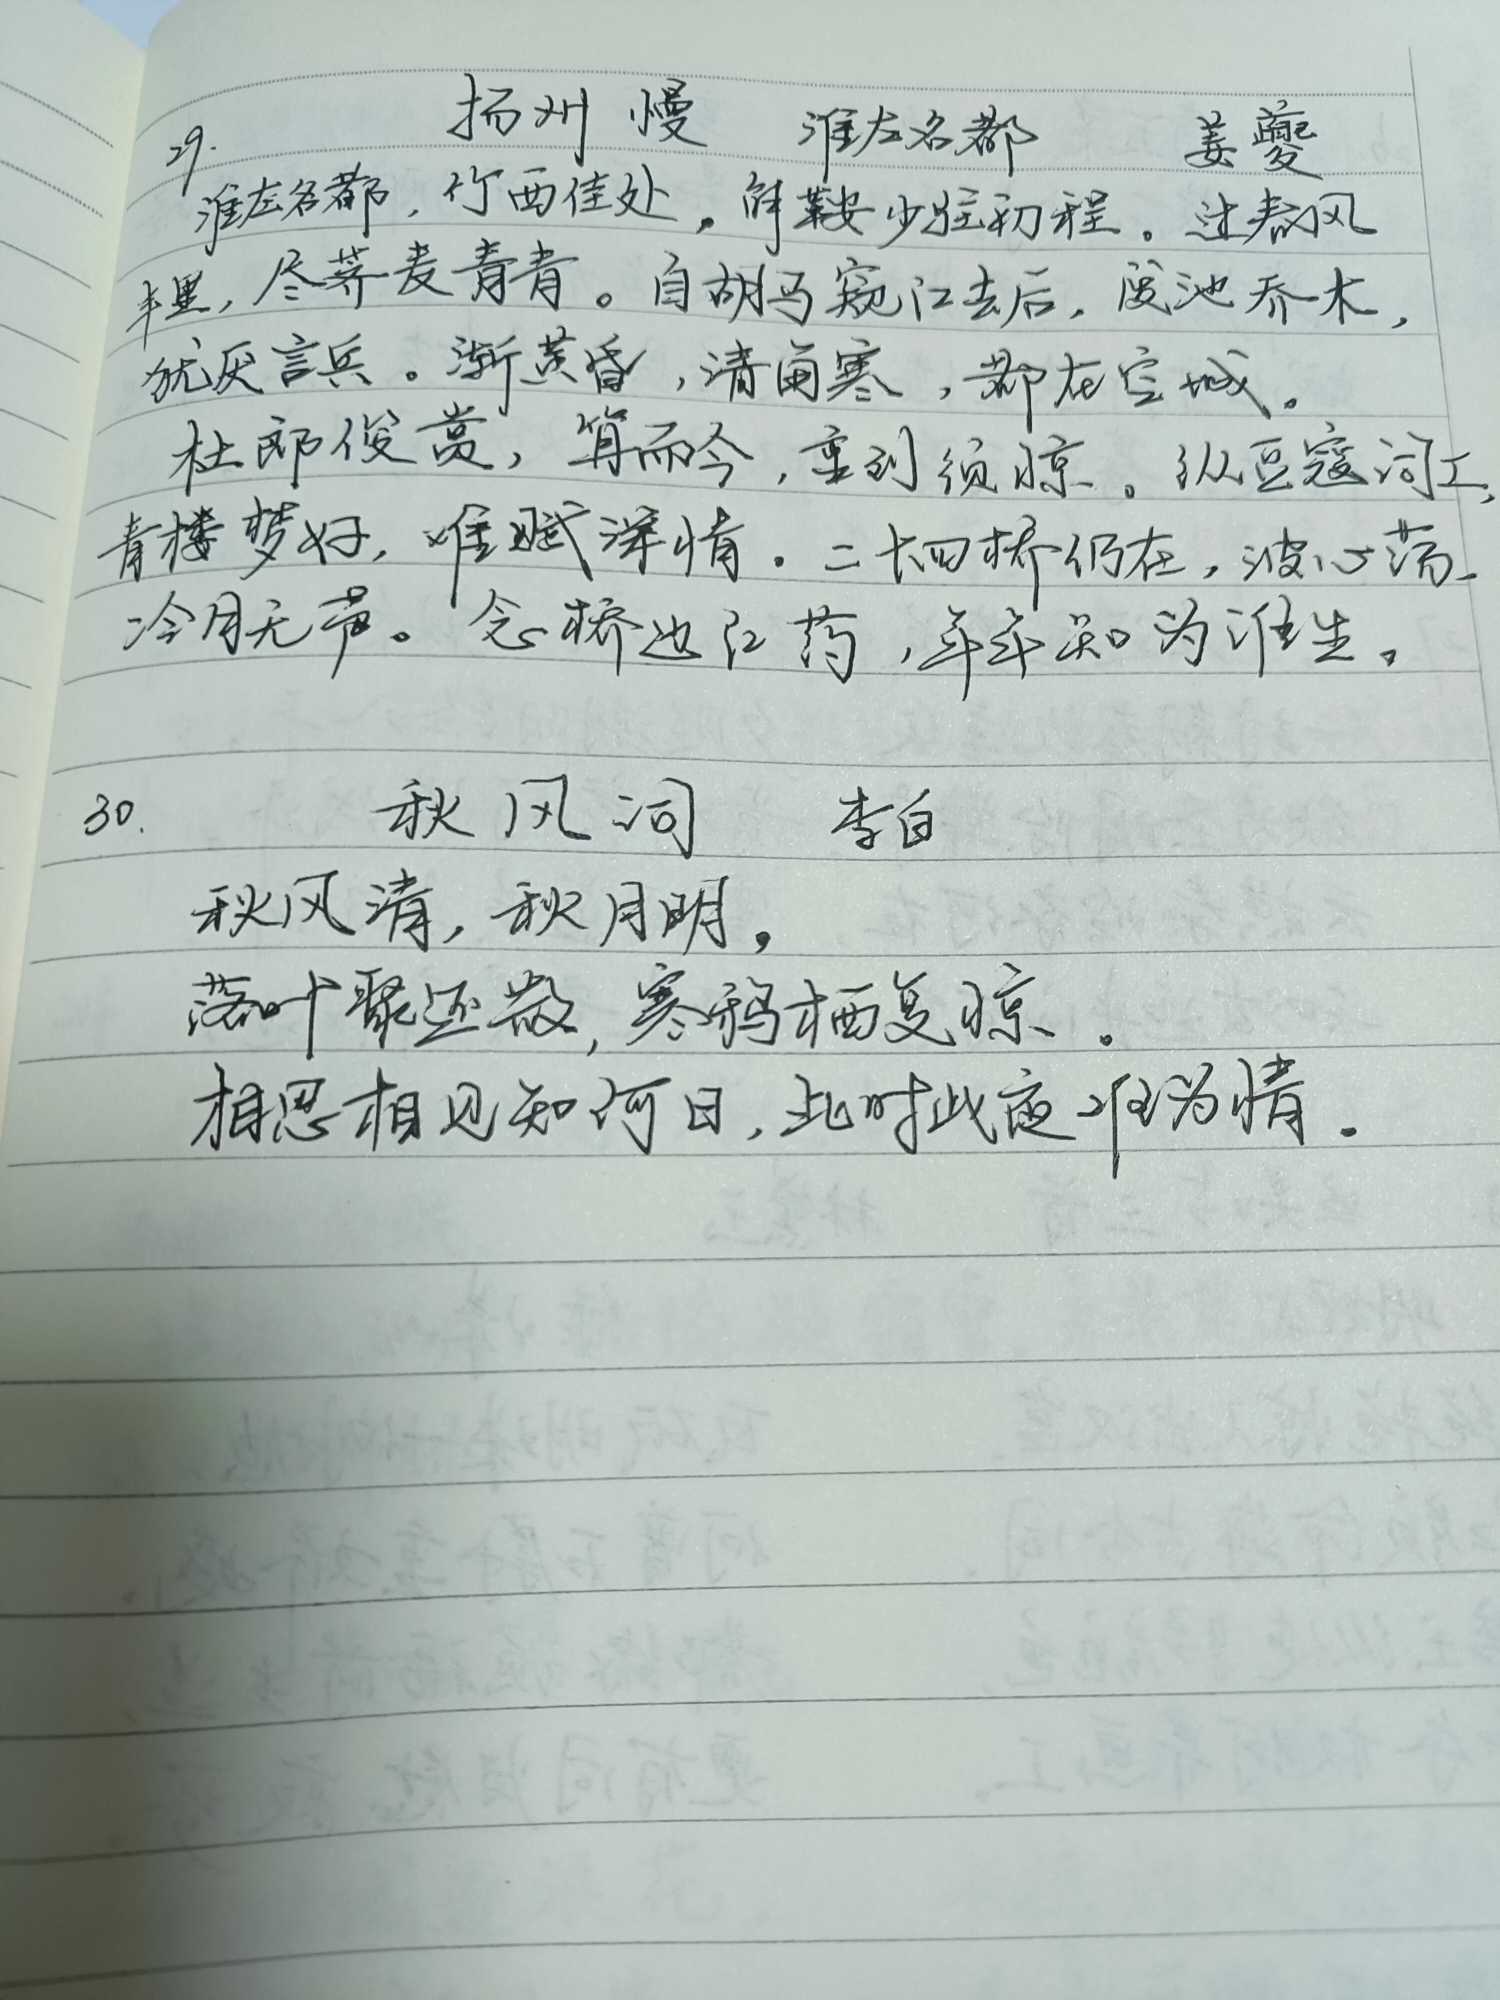 29. 扬州慢 淮左名都 姜夔
淮左名都，竹西佳处，解鞍少驻初程。过春风
十里，尽荠麦青青。自胡马窥江去后，废池乔木，
犹厌言兵。渐黄昏，清角寒，都在空城。
杜郎俊赏，算而今，重到须惊。纵豆蔻词工，
青楼梦好，难赋深情。二十四桥仍在，波心荡、
冷月无声。念桥边红药，年年知为谁生。
30. 秋风词 李白
秋风清，秋月明，
落叶聚还散，寒鸦栖复惊。
相思相见知何日，此时此夜难为情。